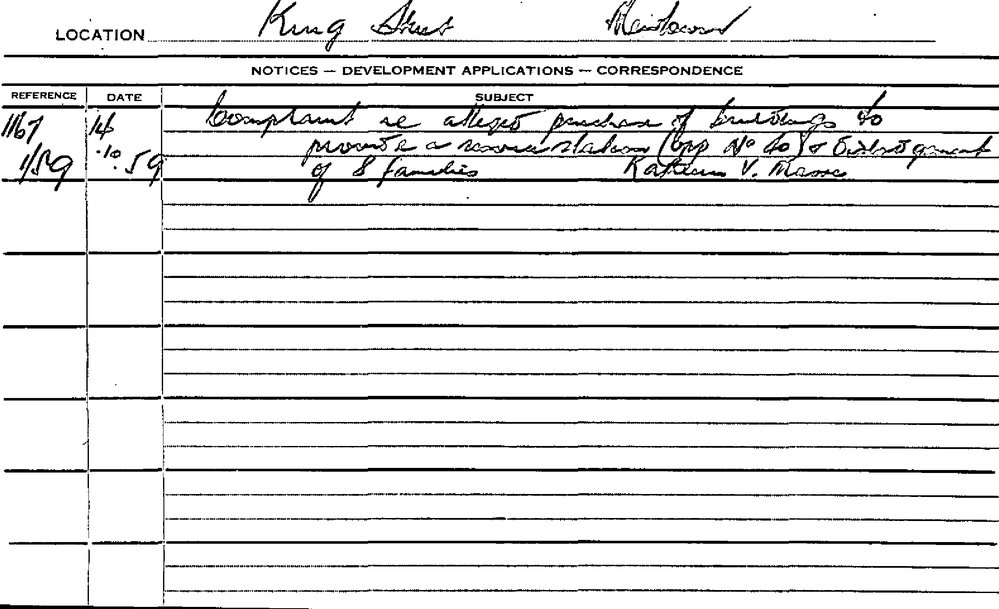 LOCATION King Street Newtown
NOTICES — DEVELOPMENT APPLICATIONS — CORRESPONDENCE
REFERENCE DATE SUBJECT
1167 14 Complaint re alleged purchase of buildings to
1/59 .10.59 provide a service station (opp No 40) &
of 8 families V.